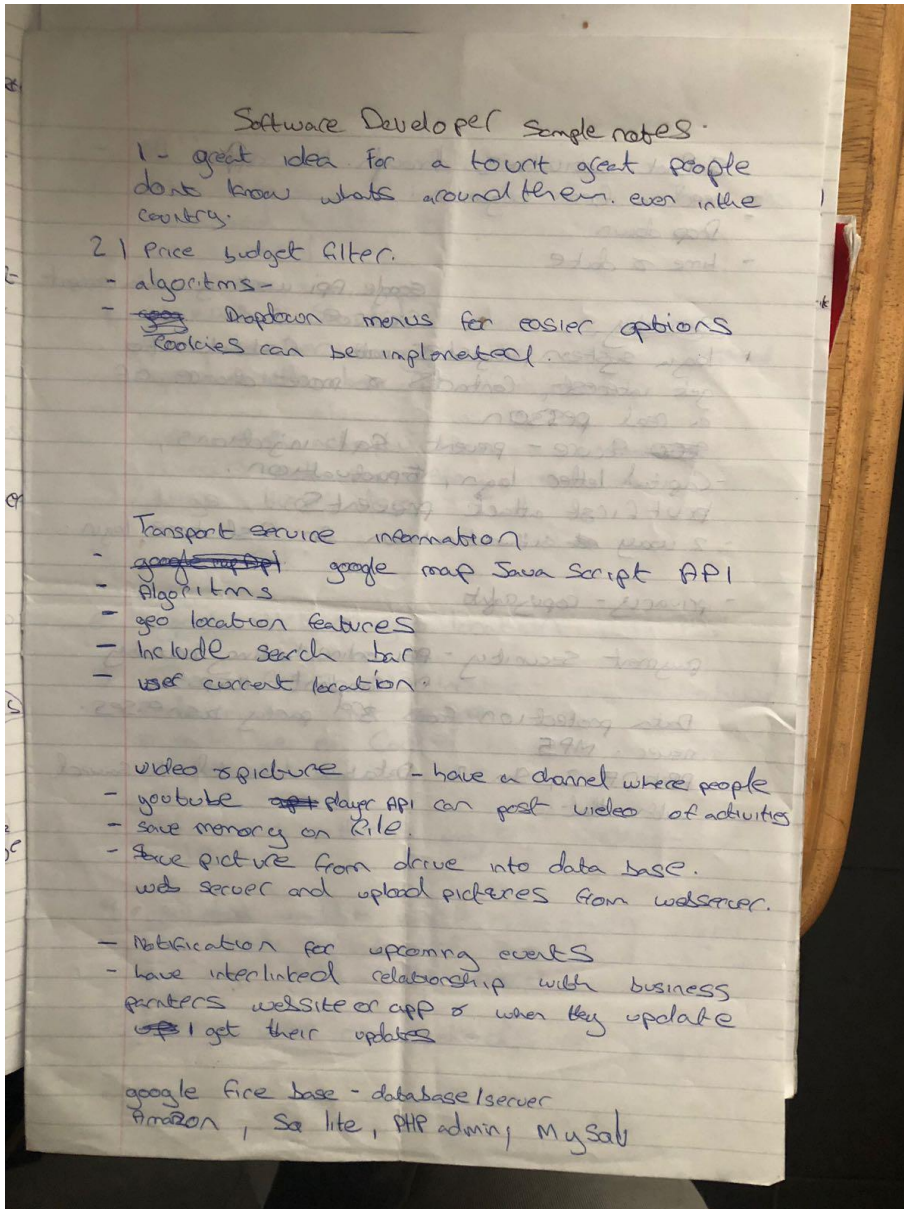 Software Developer Sample notes.
1 - great idea for a tourit great people
dont know whats around them. even in the
country.
2 | Price budget filter.
- algoritms -
- Dropdown menus for easier options
Cookies can be implonated.
Transport service information
- google map Java Script API
- Algoritms
- geo location features
- Include search bar
- user current location.
video & picture - have a channel where people
- youtube player API can post video of activities
- save memory on file.
- Save picture from drive into data base.
web server and upload pictures from webserver.
- Notification for upcoming events
- have interlinked relationship with business
parnters website or app & when they update
I get their updates
google fire base - database/server
Amazon, Sq lite, PHP admin, MySql